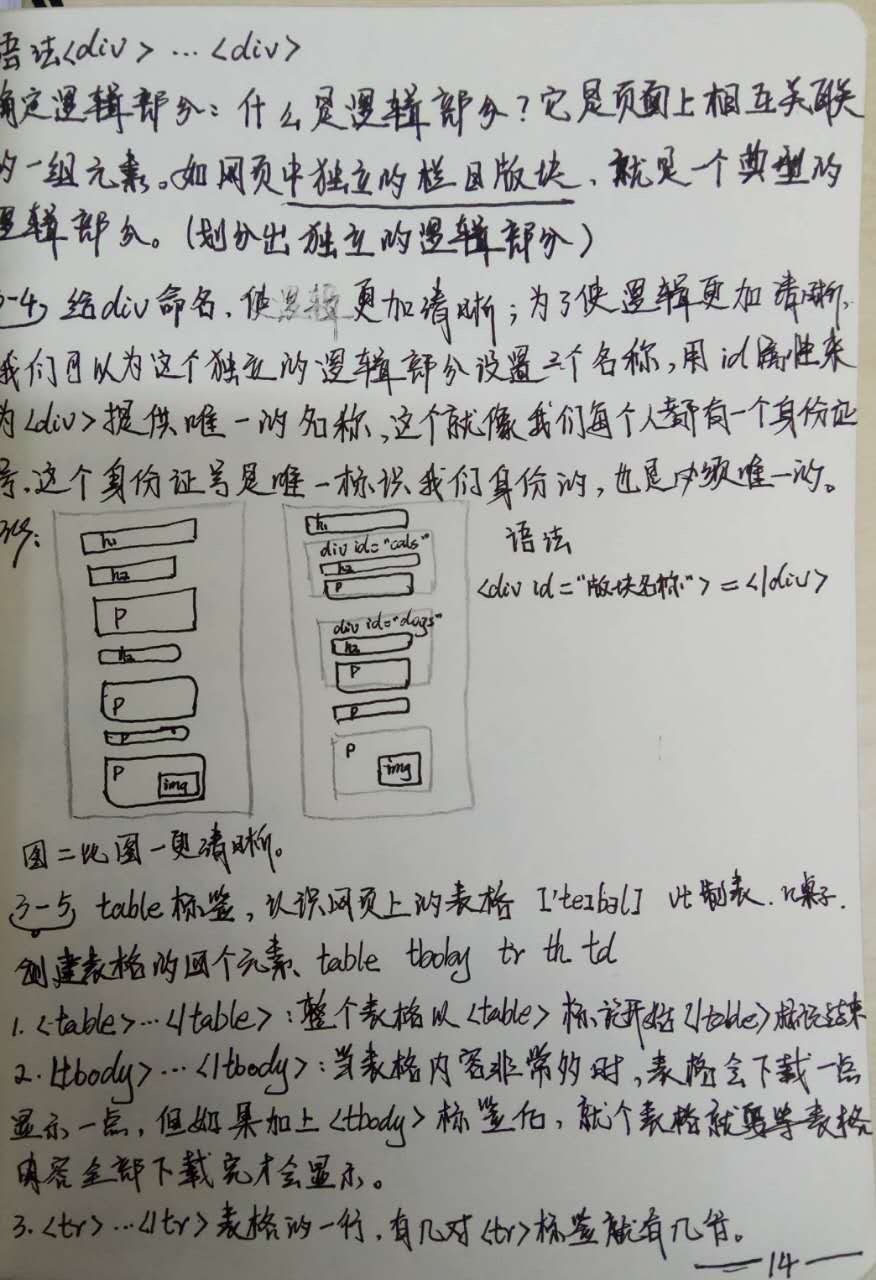 语法<div> … <div>
确定逻辑部分：什么是逻辑部分？它是页面上相互关联
的一组元素。如网页中独立的栏目版块、就是一个典型的
逻辑部分。（划分出独立的逻辑部分）
3-4、给div命名，使逻辑更加清晰；为了使逻辑更加清晰，
我们可以为这个独立的逻辑部分设置一个名称，用id属性来
为<div>提供唯一的名称，这个就像我们每个人都有一个身份证
号，这个身份证号是唯一标识我们身份的，也是必须唯一的。
h1
h2
P
h2
P
P
P
img
h1
div id="cats"
h2
P
div id="dogs"
h2
P
P
P
img
语法
<div id="版块名称"> = </div>
图二比图一更清晰。
3-5, table标签，认识网页上的表格 ['teɪbəl] vt制表. n桌子.
创建表格的四个元素、table tbody tr th td
1. <table>…</table>：整个表格以<table>标记开始</table>标记结束
2. <tbody>…</tbody>：当表格内容非常多时，表格会下载一点
显示一点，但如果加上<tbody>标签后，就个表格就要等表格
内容全部下载完才会显示。
3. <tr>…</tr>表格的一行，有几对<tr>标签就有几行。
14